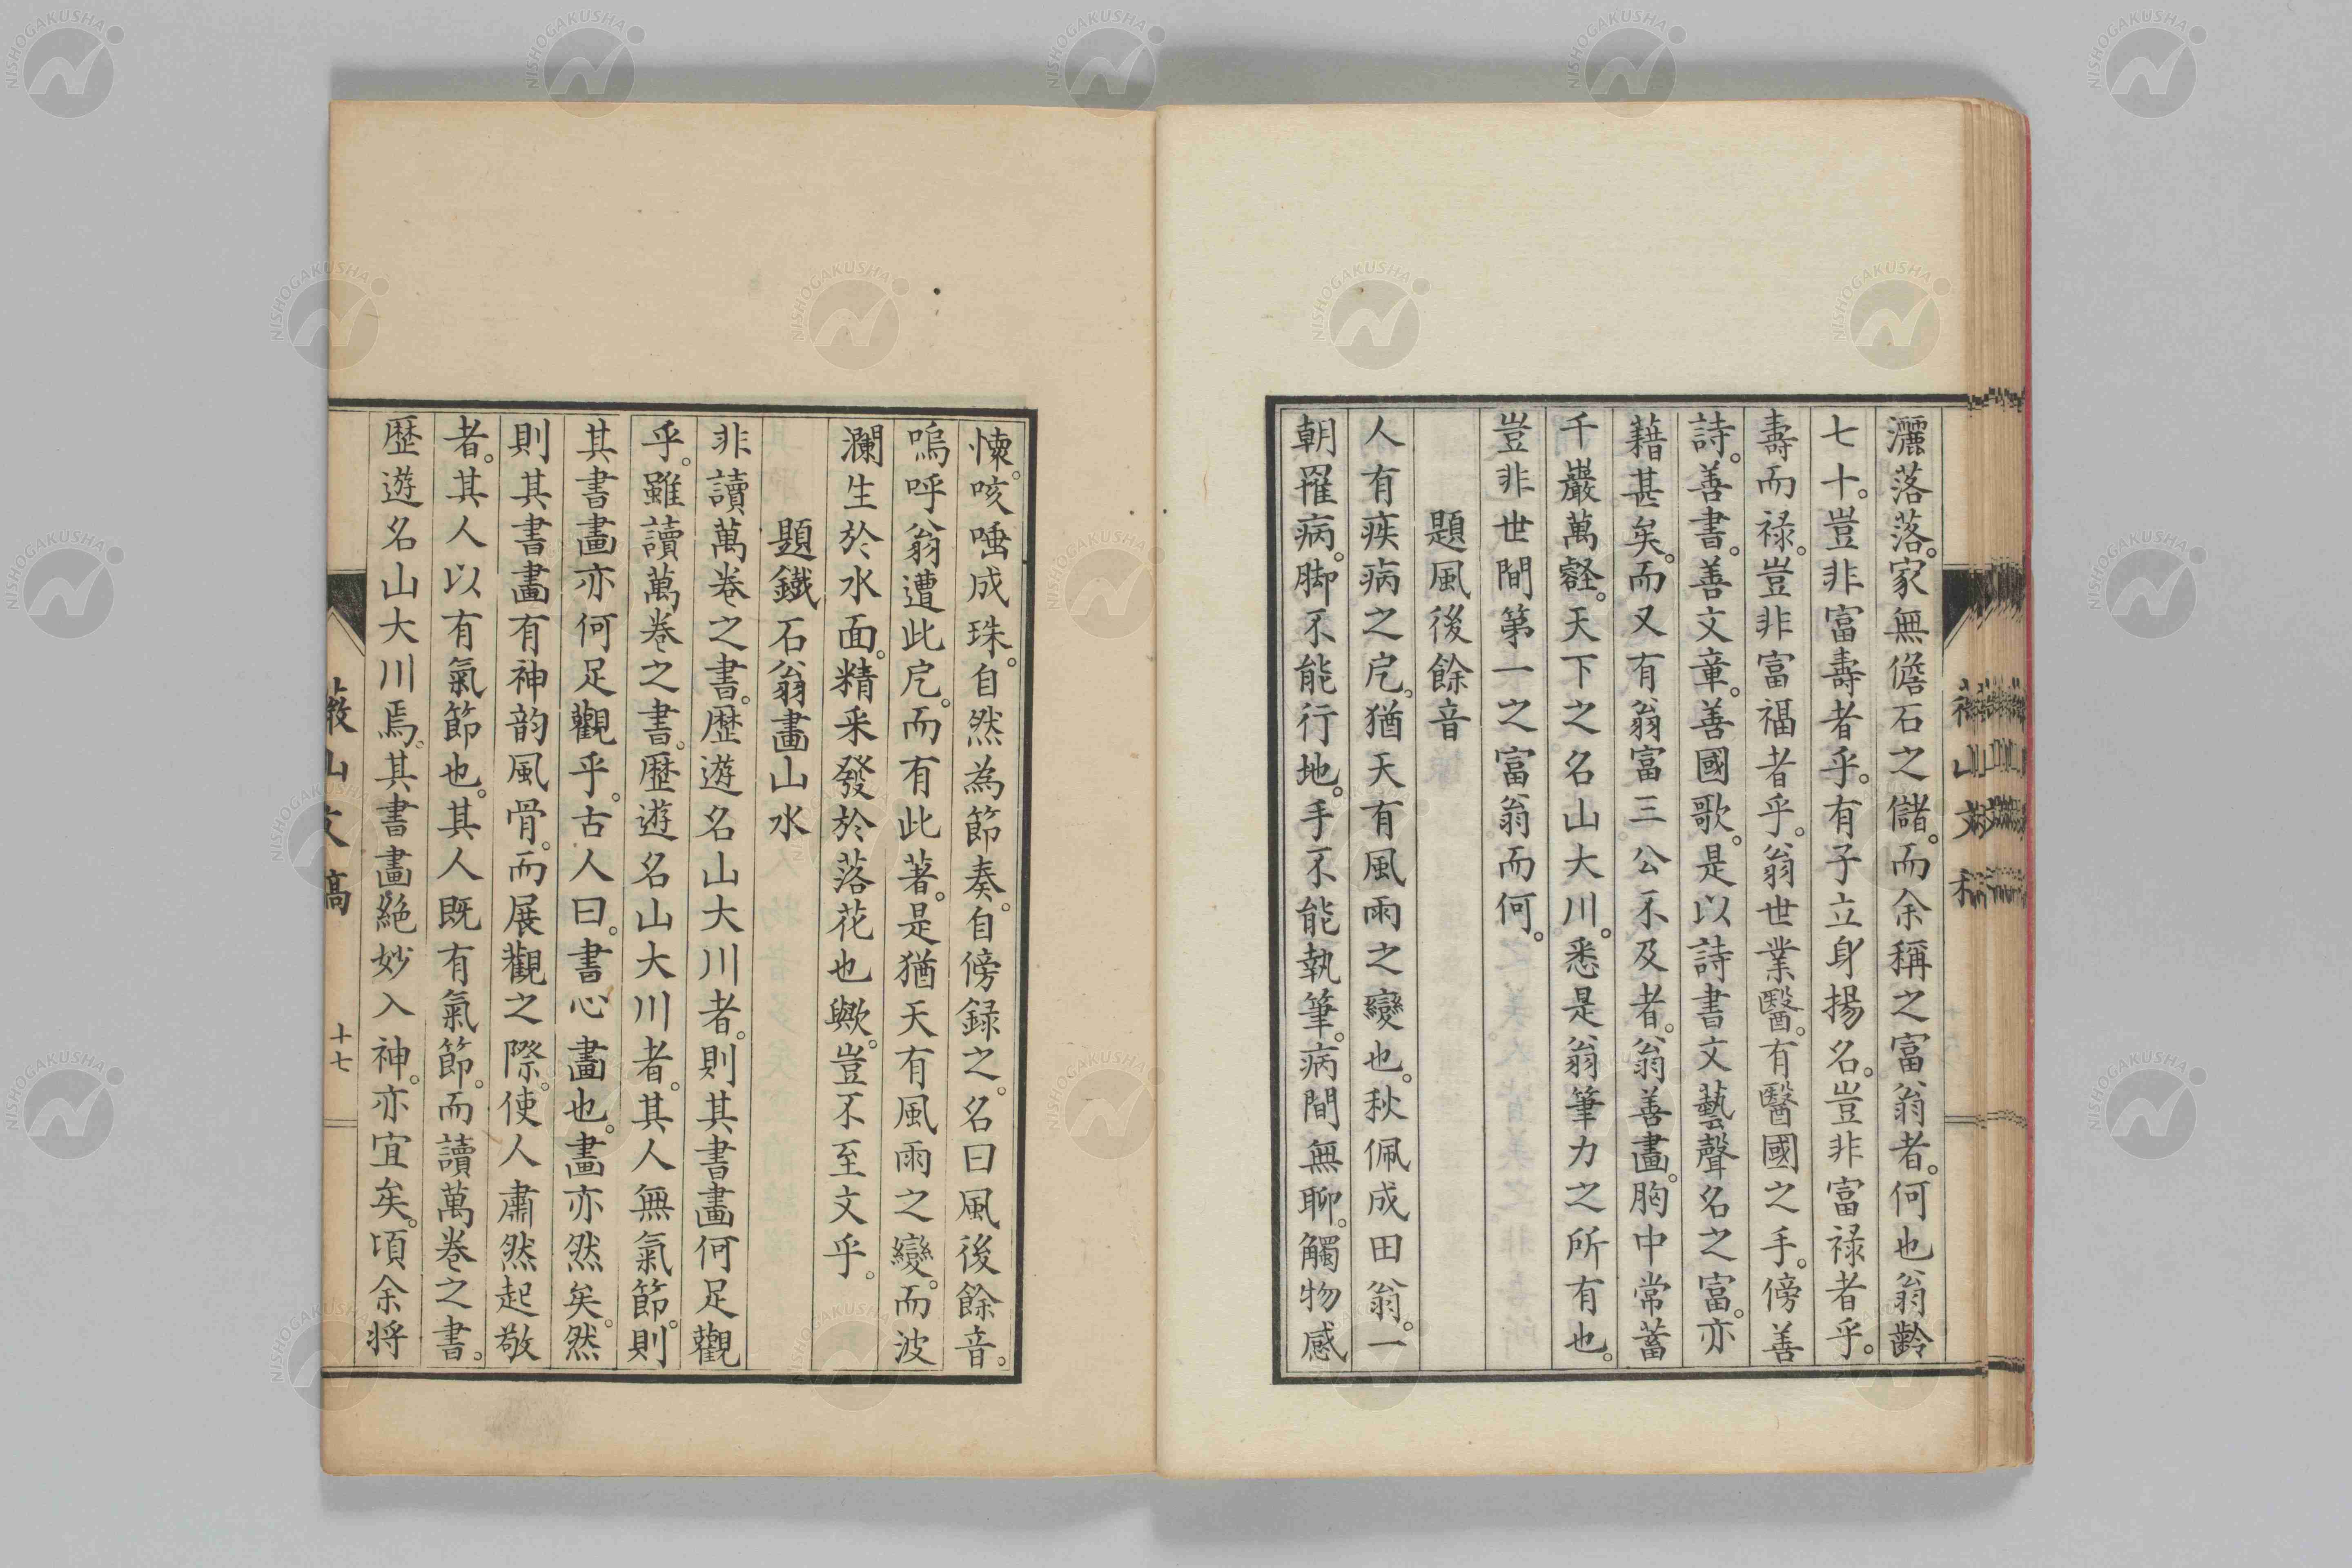 灑落落。家無儋石之儲。而余稱之富翁者。何也翁齡
七十。豈非富壽者乎。有子立身揚名。豈非富祿者乎。
壽而祿。豈非富福者乎。翁世業醫。有醫國之手。傍善
詩。善書。善文章。善國歌。是以詩書文藝聲名之富。亦
藉甚矣。而又有翁富三公不及者。翁善畫。胸中常蓄
千巖萬壑。天下之名山大川。悉是翁筆力之所有也。
豈非世間第一之富翁而何。
題風後餘音
人有疾病之戹。猶天有風雨之變也。秋佩成田翁。一
朝罹病。脚不能行地。手不能執筆。病間無聊。觸物感
懷。咳唾成珠。自然為節奏。自傍録之。名曰風後餘音。
嗚呼翁遭此戹。而有此著。是猶天有風雨之變。而波
瀾生於水面。精采發於落花也歟。豈不至文乎。
題鐵石翁畫山水
非讀萬卷之書。歷遊名山大川者。則其書畫何足觀
乎。雖讀萬卷之書。歷遊名山大川者。其人無氣節。則
其書畫亦何足觀乎。古人曰。書心畫也。畫亦然矣。然
則其書畫有神韵風骨。而展觀之際。使人肅然起敬
者。其人以有氣節也。其人既有氣節。而讀萬卷之書。
歷遊名山大川焉。其書畫絕妙入神。亦宜矣。頃余将
山文稿
十七
NISHOGAKUSHA